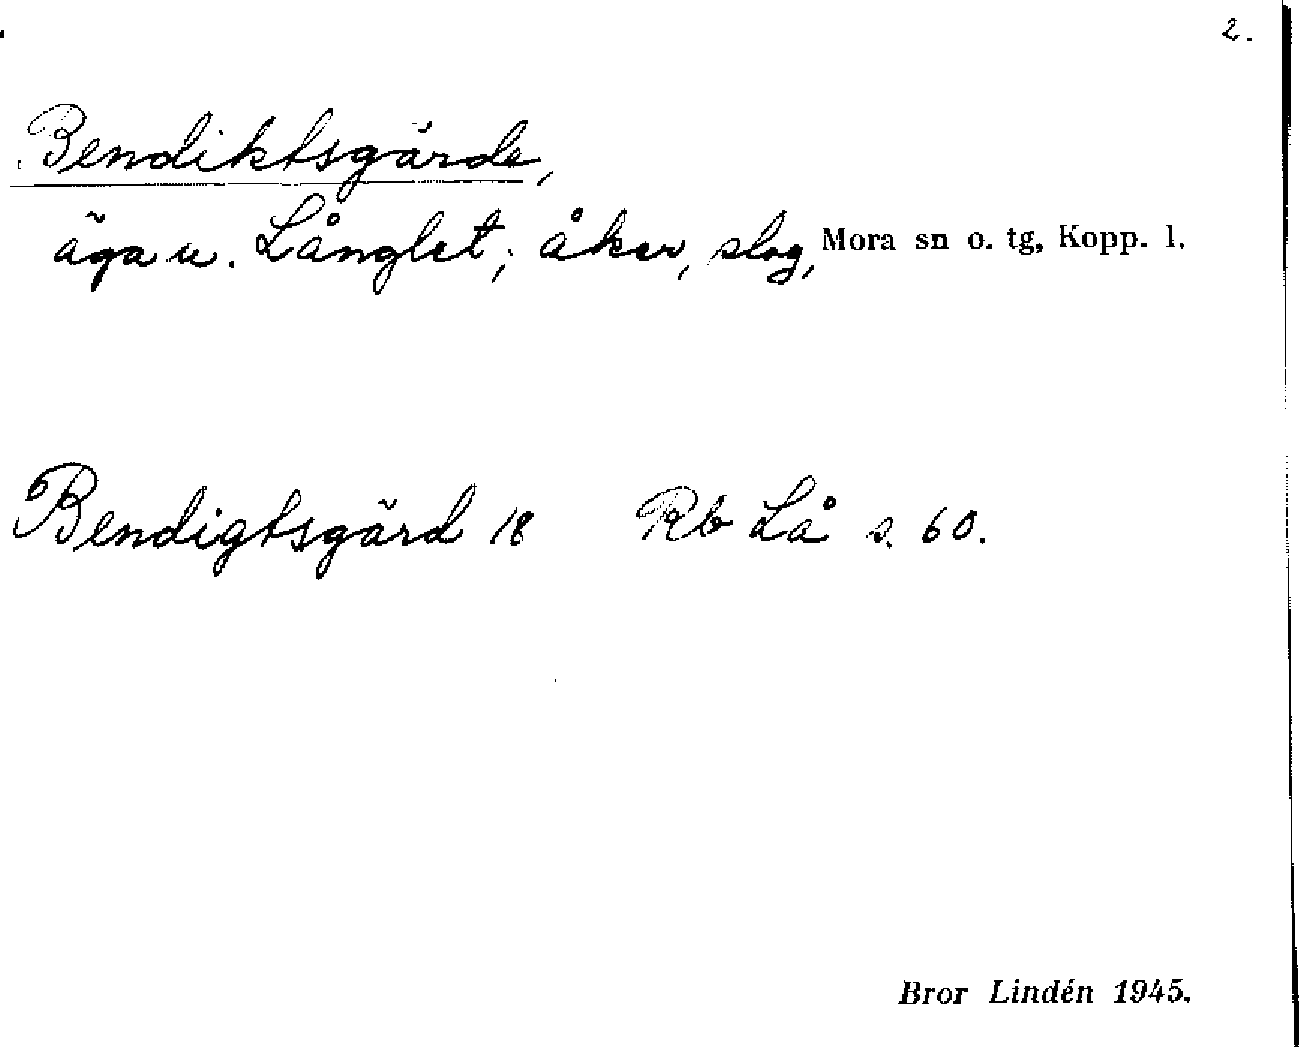 2.
Bendiktsgärde,
äga u. Långlet; åker, slog, Mora sn o. tg, Kopp. l.
Bendigtsgärd 18 Rb Lå s. 60.
Bror Lindén 1945.